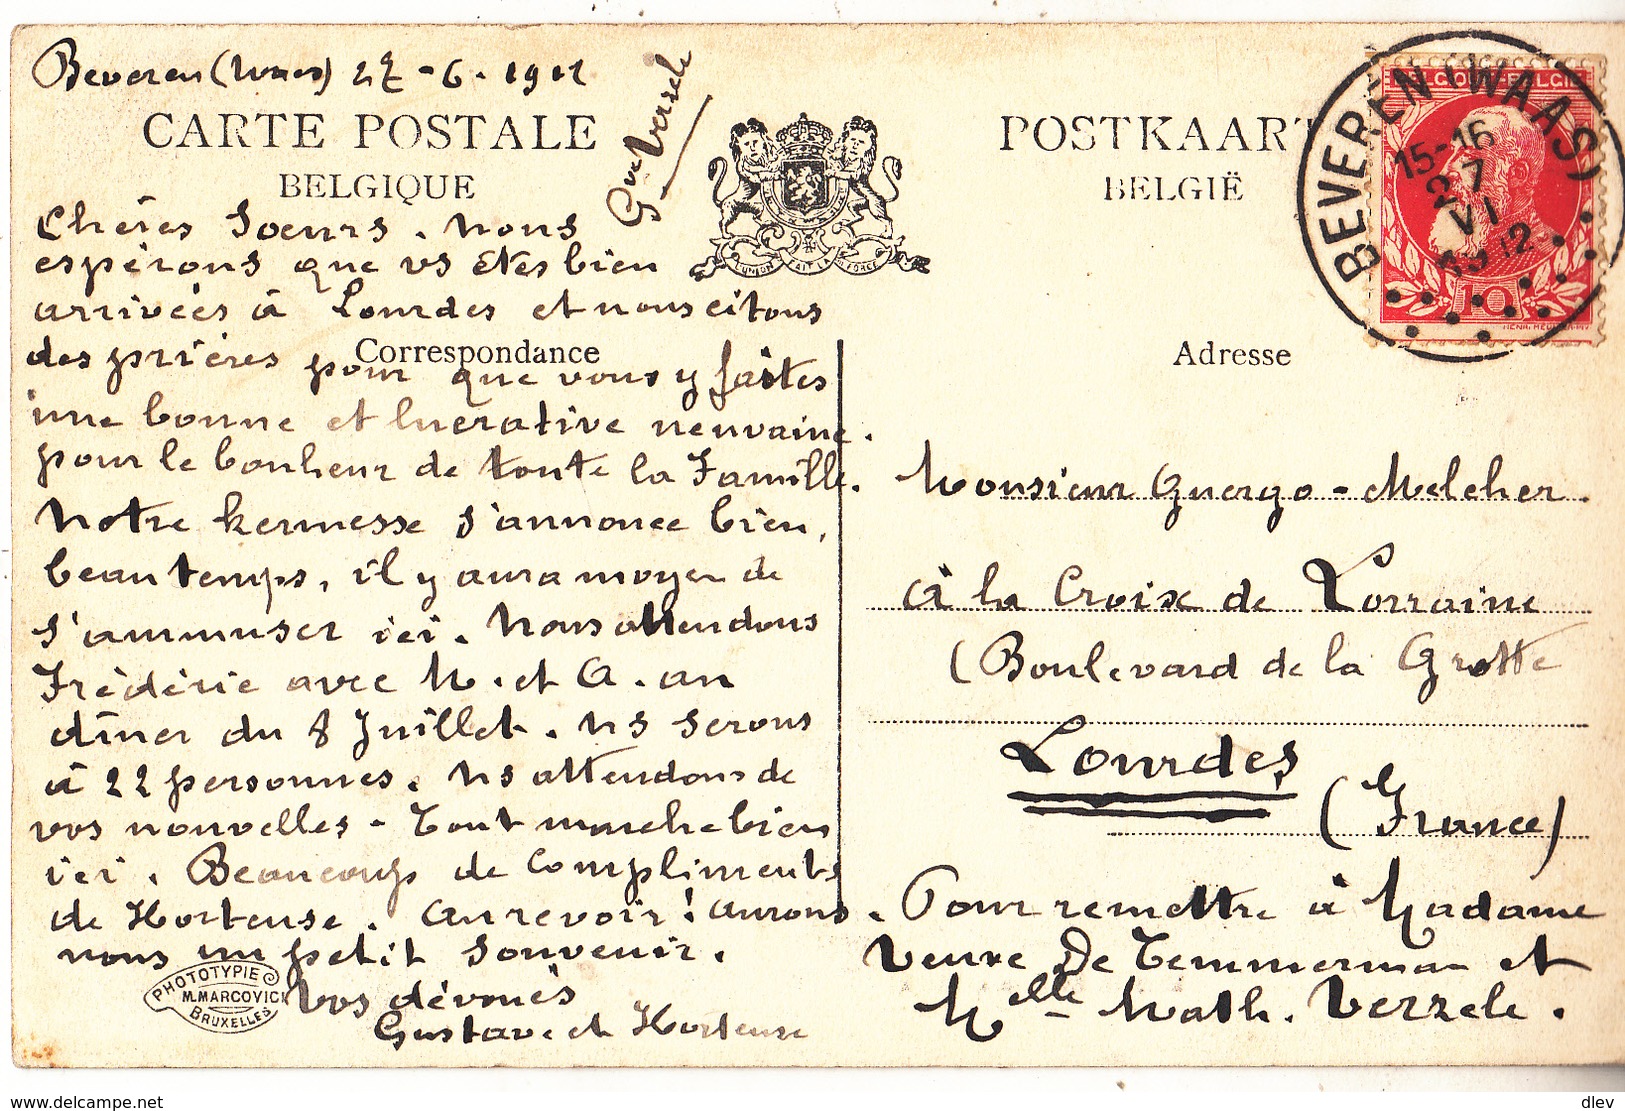 Beveren (Waes) 27-6-1912
Gve Verzele
CARTE POSTALE
BELGIQUE
L'UNION FAIT LA FORCE
POSTKAART
BELGIË
BELGIQUE-BELGIË
BEVEREN (WAAS)
15-16
27
VI
1912
10
Chères Soeurs. Nous
espérons que vs êtes bien
arrivées à Lourdes et nous
des prières pour que vous y faites
Correspondance
Adresse
une bonne et lucrative neuvaine.
pour le bonheur de toute la Famille.
Notre kermesse s'annonce bien,
beau temps, il y aura moyen de
s'ammuser ici. Nous attendons
Frédéric avec M. et A. au
dîner du 8 Juillet. Ns serons
à 22 personnes. Ns attendons de
vos nouvelles - Tout marche bien
ici. Beaucoup de compliments
de Hortense. Au revoir! Aurons
nous un petit souvenir.
Vos dévoués
Gustave et Hortense
PHOTOTYPIE
M.MARCOVICI
BRUXELLES
Monsieur Guergo-Melcher.
à la Croix de Lorraine
(Boulevard de la Grotte
Lourdes
(France)
Pour remettre à Madame
Veuve De Temmerman et
Melle Math. Verzele.
www.delcampe.net
dlev